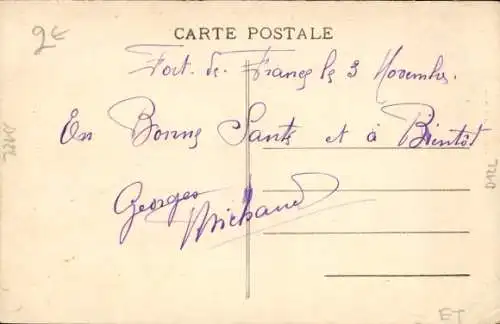 2€
CARTE POSTALE
Fort-de-France le 3 Novembre.
En Bonne Santé et à Bientôt
Georges Michaud
D122
ET